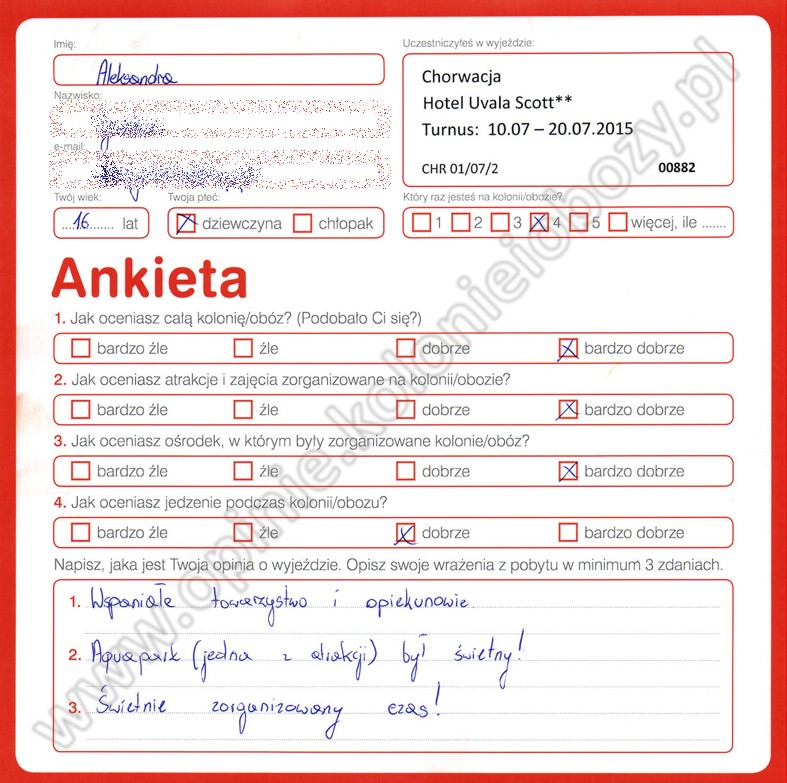 Imię:
Aleksandra
Uczestniczyłeś w wyjeździe:
Chorwacja
Hotel Uvala Scott**
Turnus: 10.07 – 20.07.2015
CHR 01/07/2 00882
Nazwisko:
e-mail:
Twój wiek: Twoja płeć:
....16....... lat dziewczyna chłopak
Który raz jesteś na kolonii/obozie?
1 2 3 4 5 więcej, ile .......
Ankieta
1. Jak oceniasz całą kolonię/obóz? (Podobało Ci się?)
bardzo źle źle dobrze bardzo dobrze
2. Jak oceniasz atrakcje i zajęcia zorganizowane na kolonii/obozie?
bardzo źle źle dobrze bardzo dobrze
3. Jak oceniasz ośrodek, w którym były zorganizowane kolonie/obóz?
bardzo źle źle dobrze bardzo dobrze
4. Jak oceniasz jedzenie podczas kolonii/obozu?
bardzo źle źle dobrze bardzo dobrze
Napisz, jaka jest Twoja opinia o wyjeździe. Opisz swoje wrażenia z pobytu w minimum 3 zdaniach.
1. Wspaniałe towarzystwo i opiekunowie.
2. Aquapark (jedna z atrakcji) był świetny!
3. Świetnie zorganizowany czas!
www.opinie.kolonieiobozy.pl